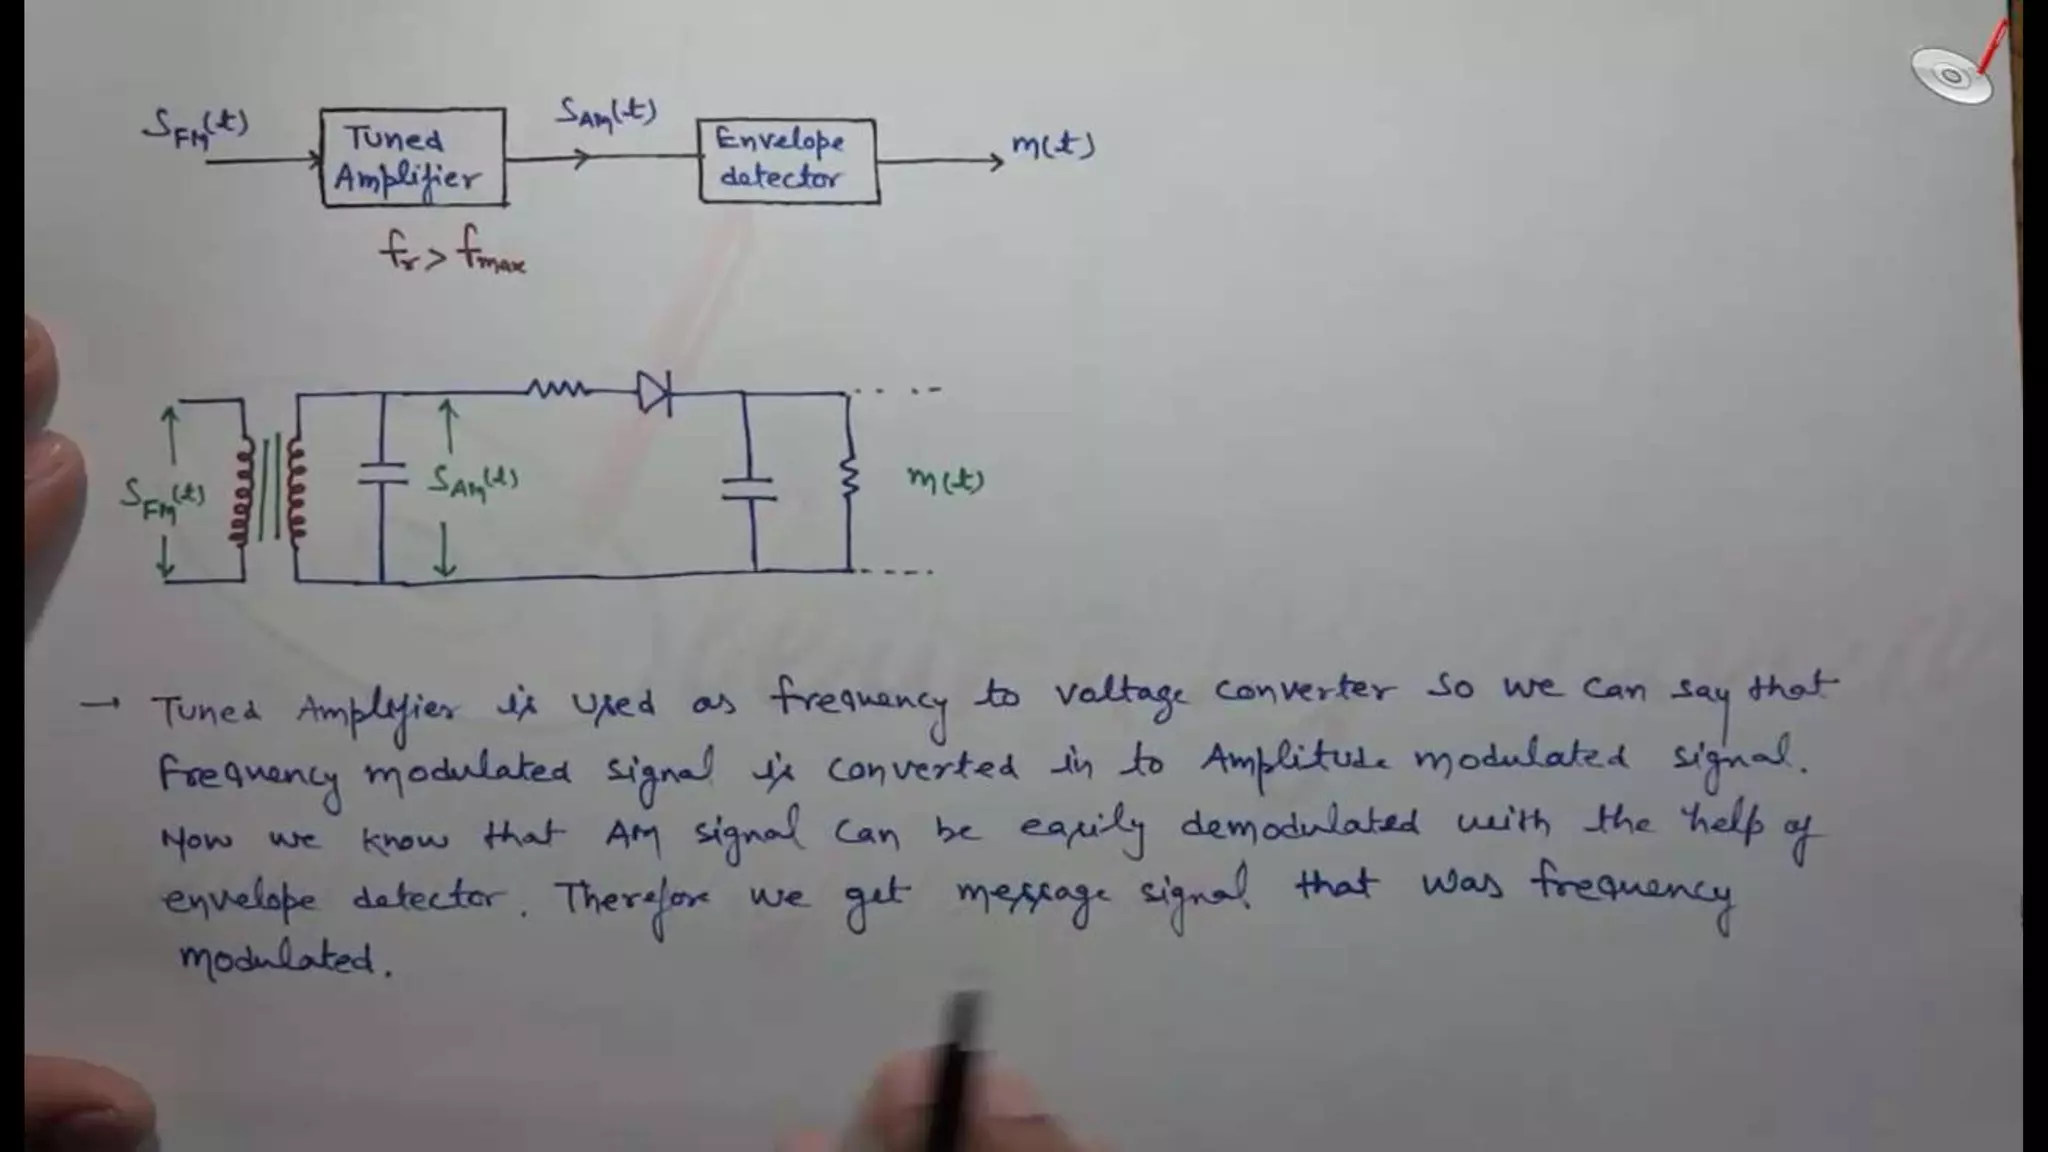 S_FM(t)
Tuned
Amplifier
S_AM(t)
Envelope
detector
m(t)
fr > fmax
S_FM(t)
S_AM(t)
m(t)
→ Tuned Amplifier is used as frequency to voltage converter so we can say that
frequency modulated signal is converted in to Amplitude modulated signal.
Now we know that AM signal can be easily demodulated with the help of
envelope detector. Therefore we get message signal that was frequency
modulated.